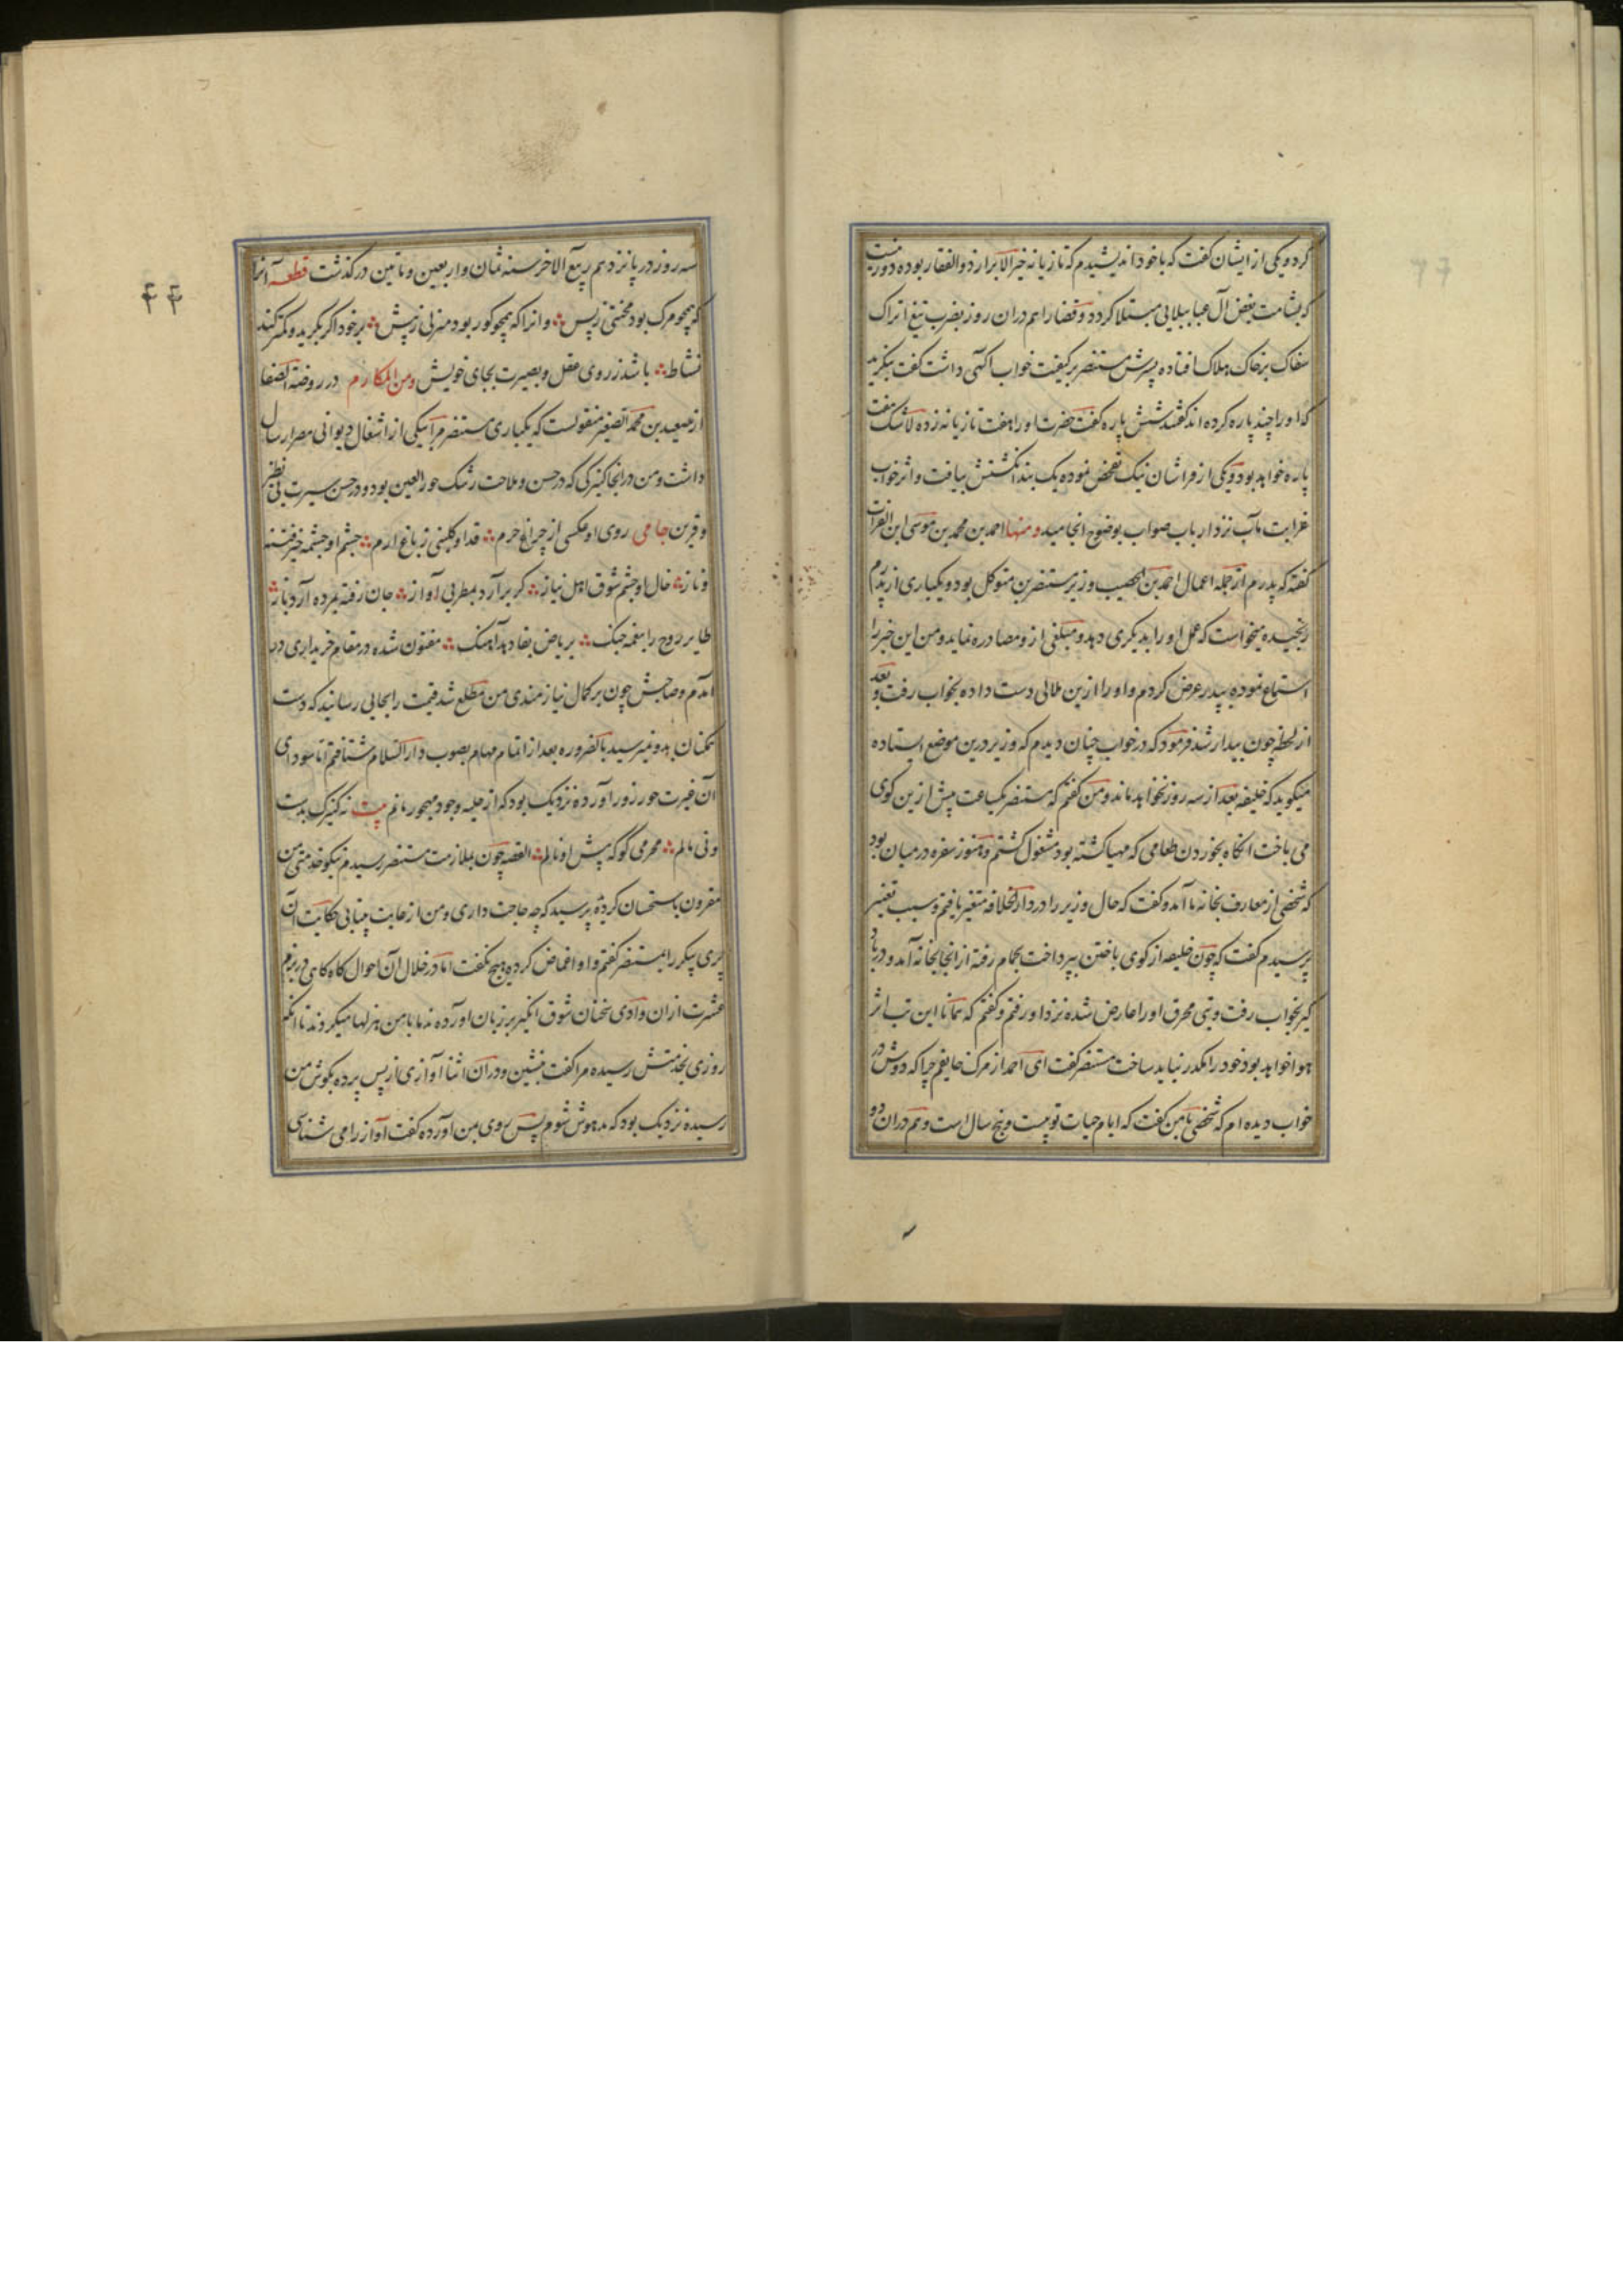 کرد و یکی از ایشان گفت که با خود اندیشیدم که تازیانه خیرالابرار ذوالفقار بوده دور نیست
که بشامت بغض آل عبا ببلایی مبتلا کردد و قضا را هم دران روز بضرب تیغ اتراک
سفاک برخاک هلاک افتاده پسرش مستنصر بر کیفیت خواب آکهی داشت گفت بنکرید
که او را چند پاره کرده اند گفتند شش پاره گفت حضرت او را هفت تازیانه زده لاشک هفت
پاره خواهد بود و یکی از فراشان نیک تفحص نموده یک بند انکشتش بیافت و اثر خواب
غرابت مآب نزد ارباب صواب بوضوح انجامید ومنها احمد بن محمد بن موسی ابن الفرات
گفته که پدرم از جمله اعمال احمد بن الخصیب وزیر مستنصر بن متوکل بود و یکباری از پدرم
رنجیده میخواست که عمل او را بدیکری دهد و مبلغی ازو مصادره نماید و من این خبر را
استماع نموده بپدر عرض کردم و او را ازین ملالی دست داده بخواب رفت و بعد
از لحظه چون بیدار شد فرمود که در خواب چنان دیدم که وزیر درین موضع ایستاده
میکوید که خلیفه بعد از سه روز نخواهد ماند و من گفتم که مستنصر یکساعت پیش ازین کوی
می باخت انکاه بخوردن طعامی که مهیا کشته بود مشغول کشتم و هنوز سفره در میان بود
که شخصی از معارف بخانه ما آمد و گفت که حال وزیر را در دار الخلافه متغیر یافتم و سبب تغییر
پرسیدم گفت که چون خلیفه از کوی باختن بپرداخت بحمام رفته از انجا بخانه آمد و در باد
کیر بخواب رفت و تبی محرق او را عارض شده نزد او رفتم و گفتم که همانا این تب اثر
هوا خواهد بود خود را مکدر نباید ساخت مستنصر گفت ای احمد از مرک خایفم چرا که دوش در
خواب دیده ام که شخصی با من گفت که ایام حیات تو بیست و پنج سال است و هم دران دو
۴۴
سه روز در پانزدهم ربیع الاخر سنه ثمان و اربعین و مأتین درکذشت قطعه آنرا
که همچو مرک بود محنتی ز پس وانرا که همچو کور بود منزلی ز پیش بر خود اکر بکرید و کمتر کند
نشاط باشد ز روی عقل و بصیرت بجای خویش ومن المکارم در روضة الصفا
از سعید بن محمد الصغیر منقولست که یکباری مستنصر مرا بیکی از اشغال دیوانی مصر ارسال
داشت و من در انجا کنیزکی که در حسن و ملاحت رشک حور العین بود و در حسن سیرت بی نظیر
و قرین جامی روی او عکسی از چراغ حرم قد او کلبنی ز باغ ارم چشم او چشمه خیز فتنه
و ناز خال او چشم شوق اهل نیاز کر برآرد بمطربی آواز جان رفته بمرده آرد باز
طایر روح را بنغمه چنک بریاض بقا دهد آهنک مفتون شده در مقام خریداری در
آمدم و صاحبش چون بر کمال نیازمندی من مطلع شد قیمت را بجایی رسانید که دست
تمکنان بدو نمیرسید بالضروره بعد از اتمام مهام بصوب دار السلام شتافتم اما سودای
آن غیرت حور زور آورده نزدیک بود که از حلیه وجود مهجور مانم بیت نه کنیزک بدست
ونی مالم محرمی کو که پیش او نالم القصه چون بملازمت مستنصر رسیدم نیکو خدمتی من
مقرون باستحسان کردیده پرسید که چه حاجت داری و من از غایت بیتابی حکایت آن
پری پیکر را بمستنصر گفتم و او اغماض کرده هیچ نکفت اما در خلال آن احوال کاه کاهی در بزم
عشرت ازان وادی سخنان شوق انکیز بر زبان آورده ندما با من هزلها میکردند تا انکه
روزی بخدمتش رسیده مرا گفت بنشین و دران اثنا آوازی از پس پرده بکوش من
رسیده نزدیک بود که مدهوش شوم پس روی بمن آورده گفت آواز را می شناسی